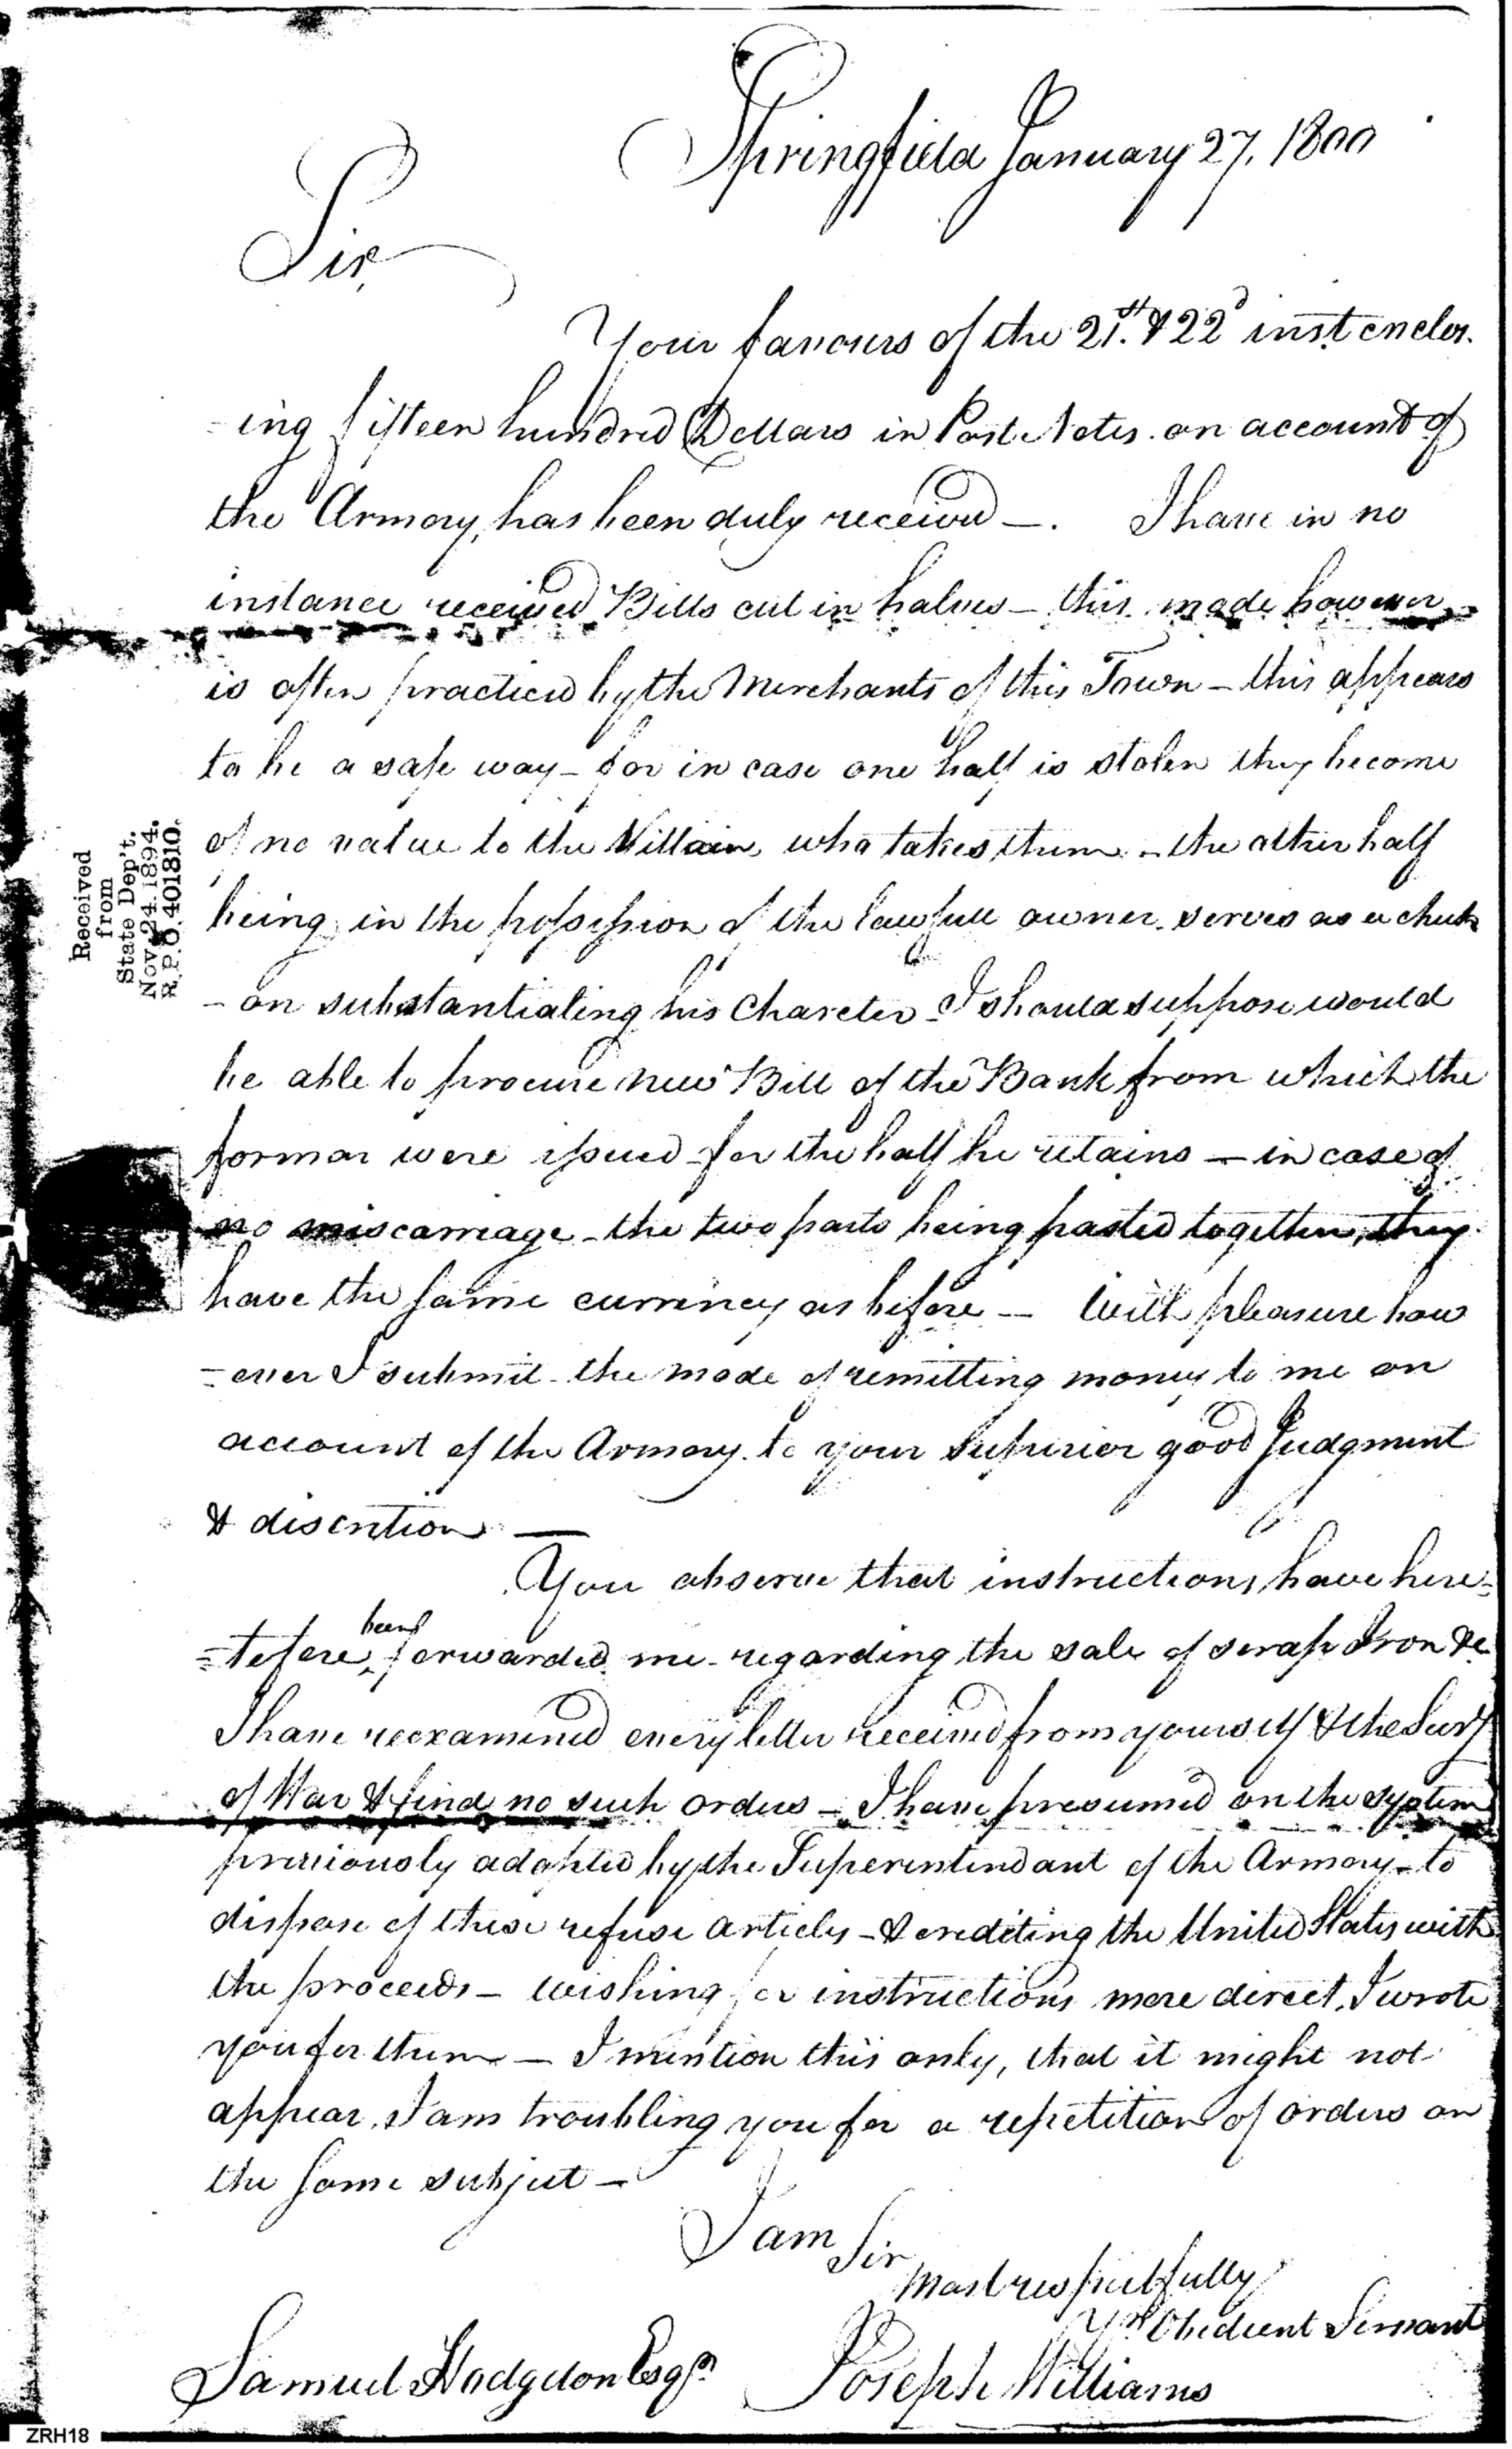 Springfield January 27. 1800
Sir,
Your favours of the 21st. & 22d inst enclos-
-ing fifteen hundred Dollars in Post Notes on account of
the Armory, has been duly received —. I have in no
instance received Bills cut in halves — this mode however
is often practiced by the Merchants of this Town — this appears
to be a safe way — for in case one half is stolen they become
of no value to the Villain who takes them — the other half
being in the possession of the lawfull owner serves as a check
- on substantiating his Charecter I should suppose would
be able to procure new Bill of the Bank from which the
former were issued for the half he retains — in case of
no miscarriage - the two parts being pasted together, they
have the same currency as before — With pleasure how
=ever I submit the mode of remitting money to me on
account of the Armory to your Superior good Judgment
& discretion —
You observe that instructions have here=
=tofore been forwarded me regarding the sale of scrap Iron &c
I have reexamined every letter received from yourself & the Secy
of War & find no such orders — I have presumed on the system
previously adopted by the Superintendant of the Armory — to
dispose of these refuse articles — & crediting the United States with
the proceeds — wishing for instructions more direct, I wrote
you for them — I mention this only, that it might not
appear, I am troubling you for a repetition of orders on
the same subject —
I am Sir
Most respectfully
Yr Obedient Servant
Samuel Hodgdon Esqr. Joseph Williams
Received
from
State Dep't.
Nov. 24. 1894.
R.P.O. 401810.
ZRH18